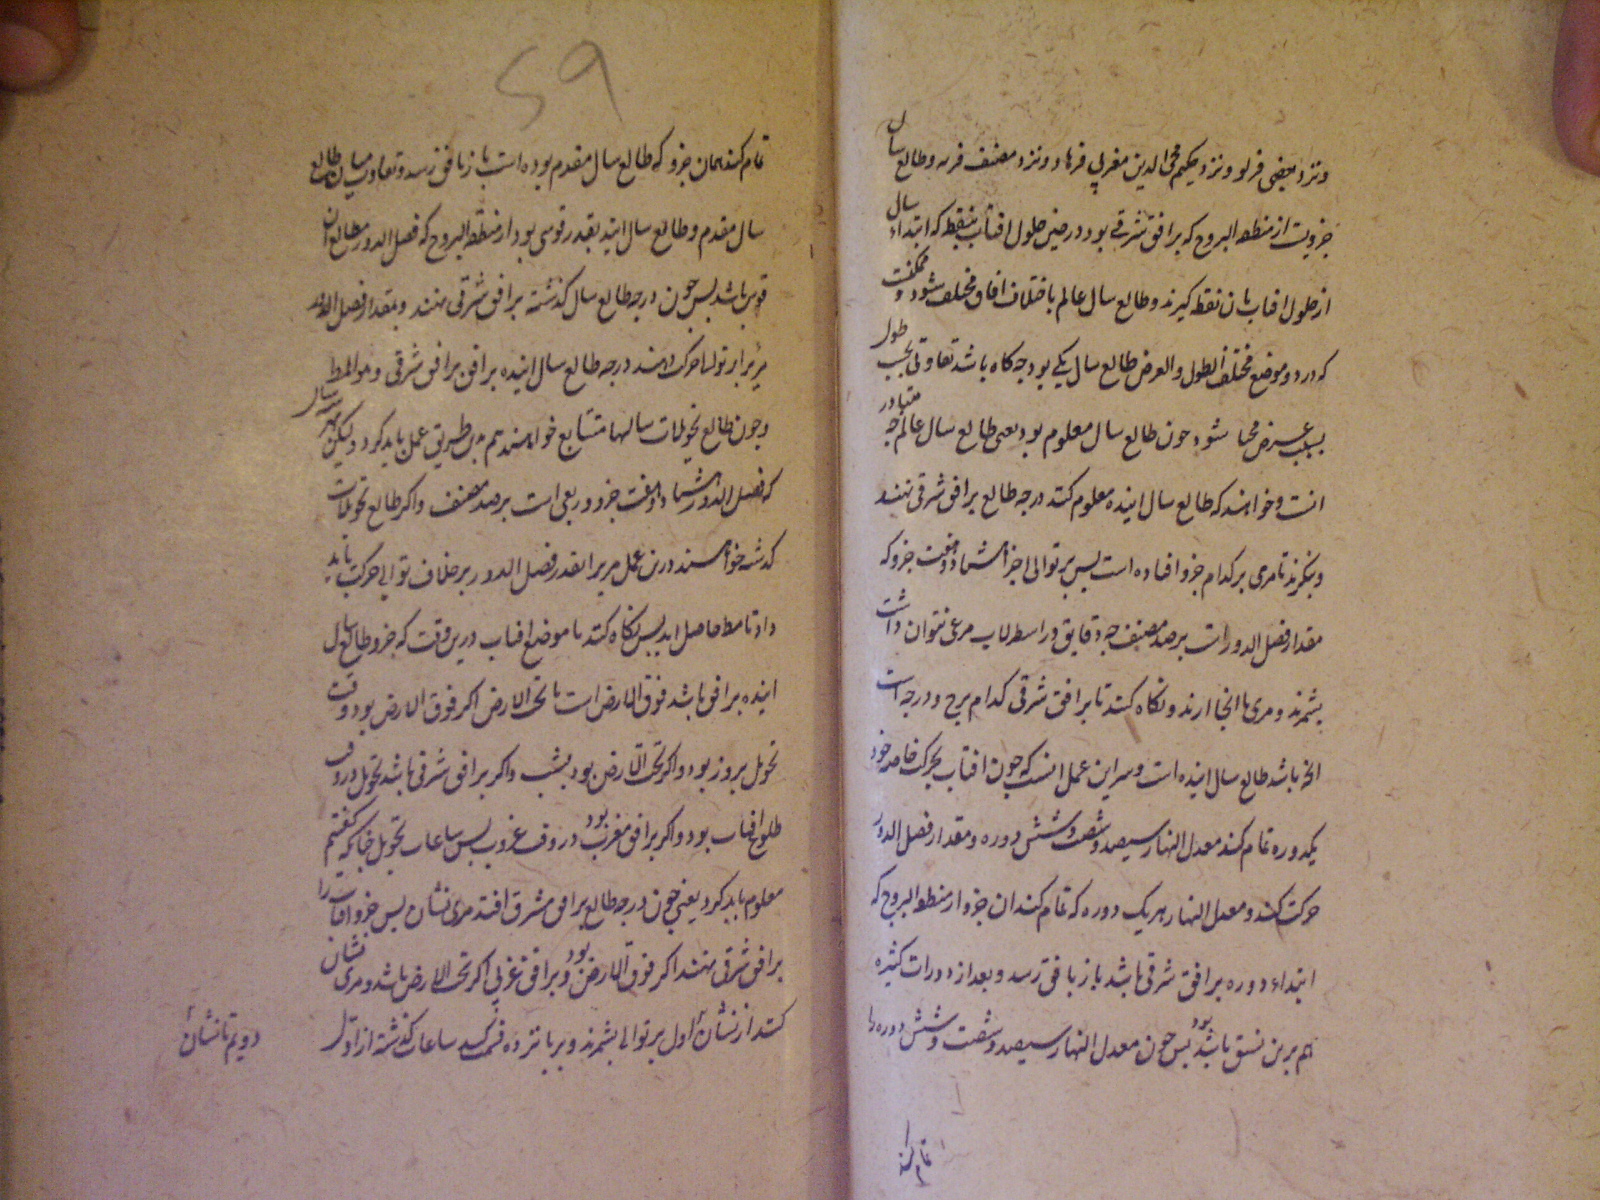 ونزد بعضی فرلو ونزد حکیم محی الدین مغربی فرهاد ونزد مصنف فرسه وطالع سال
جزویت از منطقه البروج که بر افق شرقی بود در حین حلول افتاب بنقطه که ابتداء سال
از حلول افتاب بان نقطه کیرند وطالع سال عالم باختلاف افاق مختلف شود وممکنست
که در دو موضع مختلف الطول والعرض طالع سال یکی بود چه کاه باشد تفاوتی بحسب طول
بسبب عرض شود چون طالع سال معلوم بود یعنی طالع سال عالم چه متبادر
انست وخواهند که طالع سال اینده معلوم کنند درجه طالع بر افق شرقی نهند
وبنکرند تا مری بر کدام جزو افتاده است پس بر توالی اجزا هشتاد وهفت جزو که
مقدار فصل الدور است برصد مصنف چه دقایق در اسطرلاب مرعی نتوان داشت
بشمرند ومری باانجا ارند ونکاه کنند تا بر افق شرقی کدام برج ودرجه است
انچه باشد طالع سال اینده است وسر این عمل انست که چون افتاب بحرکت خاصه خود
یکدوره تمام کند معدل النهار سیصد وشصت وشش دوره ومقدار فصل الدور
حرکت کند ومعدل النهار بهر یک دوره که تمام کند ان جزو از منطقه البروج که
ابتداء دوره بر افق شرقی باشد باز بافق رسد وبعد از دورات کثیره
هم برین نسق باشد بود پس چون معدل النهار سیصد وشصت وشش دوره را
تمام کند
59
تمام کند همان جزو که طالع سال مقدم بوده است باز بافق رسد وتفاوت میان طالع
سال مقدم وطالع سال اینده بقدر قوسی بود از منطقه البروج که فصل الدور مطالع ان
قوس باشد پس چون درجه طالع سال کذشته بر افق شرقی نهند وبقدار فصل الدور
مری را بر توالی حرکت دهند درجه طالع سال اینده بر افق شرقی وهو المط
وچون طالع تحویلات سالها متتابع خواهند هم برین طریق عمل باید کرد ولیکن هر سال
که فصل الدور هشتاد وهفت جزو وربعی است برصد مصنف واکر طالع تحویلات
کذشته خواهند درین عمل مری را بقدر فصل الدور بر خلاف توالی حرکت باید
داد تا مط حاصل اید پس نکاه کنند تا موضع افتاب درین وقت که جزو طالع سال
اینده بر افق باشد فوق الارض است یا تحت الارض اکر فوق الارض بود وقت
تحویل بروز بود واکر تحت الارض بود بشب واکر بر افق شرقی باشد تحویل در وقت
طلوع افتاب بود واکر بر افق مغرب بود در وقت غروب پس ساعات تحویل چنانکه کفتیم
معلوم باید کرد یعنی چون درجه طالع بر افق مشرق افتد مری نشان پس جزو افتاب را
بر افق شرقی نهند اکر فوق الارض بود وبر افق غربی اکر تحت الارض باشد ومری نشان
کنند از نشان اول بر توالی بشمرند وبر پانزده قسمت کنند ساعات کذشته از اول
دویم تا نشان